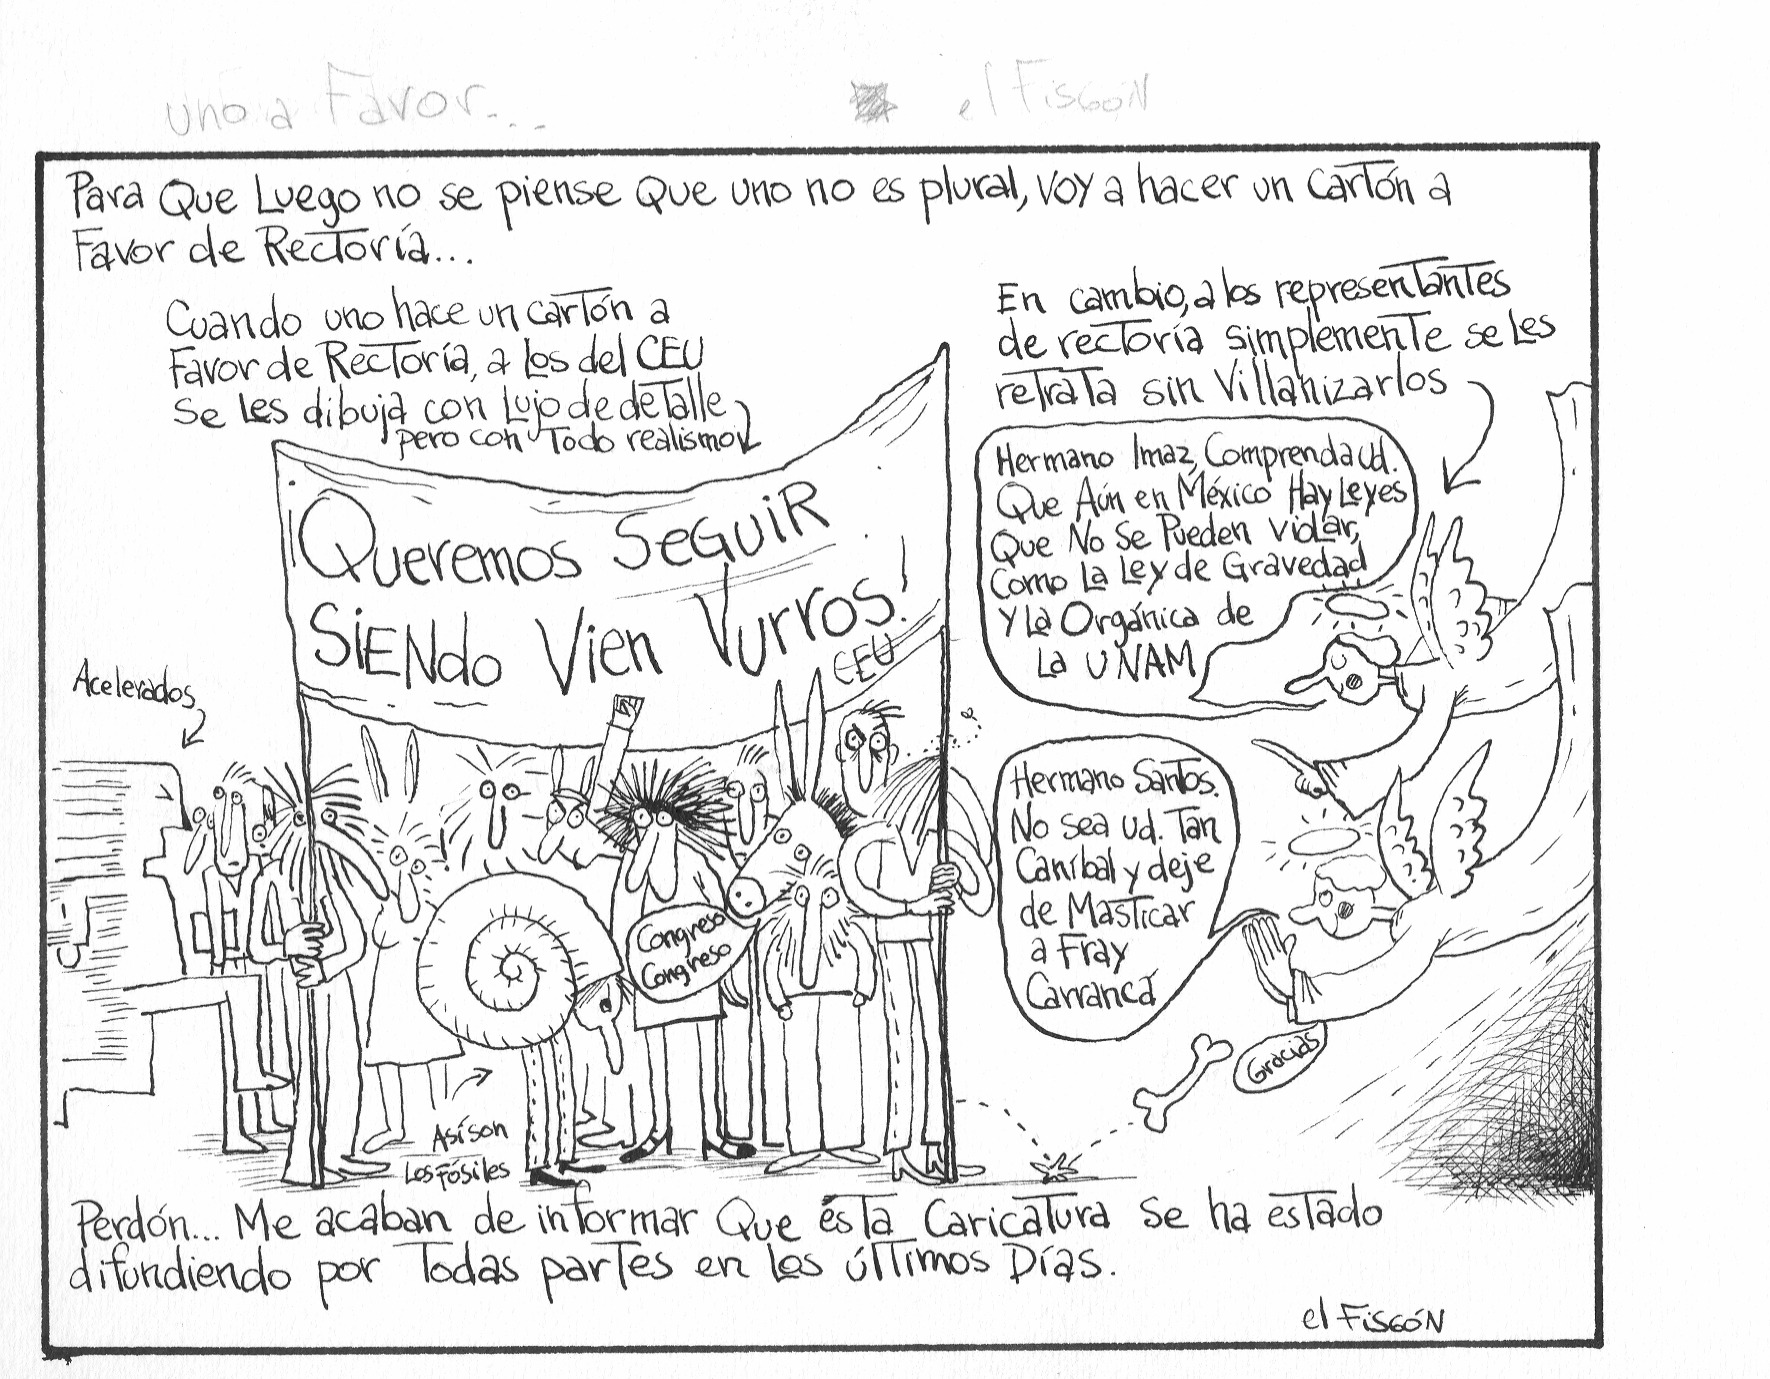 uno a Favor...
el Fisgón
Para Que Luego no se piense Que uno no es plural, voy a hacer un cartón a
Favor de Rectoría...
Cuando uno hace un cartón a
Favor de Rectoría, a los del CEU
Se Les dibuja con Lujo de detalle
pero con Todo realismo
En cambio, a los representantes
de rectoría simplemente se Les
retrata sin Villanizarlos
¡Queremos SeGuir
SiENdo Vien Vurros!
CEU
Acelerados
Hermano Imaz, Comprenda Ud.
Que Aún en México Hay Leyes
Que No Se Pueden Violar,
Como La Ley de Gravedad
y La Orgánica de
La UNAM
Hermano Santos.
No sea Ud. Tan
Caníbal y deje
de Masticar
a Fray
Carrancá
Congreso
Congreso
Gracias
Así son
Los Fósiles
Perdón... Me acaban de informar Que ésta Caricatura Se ha estado
difundiendo por Todas partes en los últimos Días.
el Fisgón